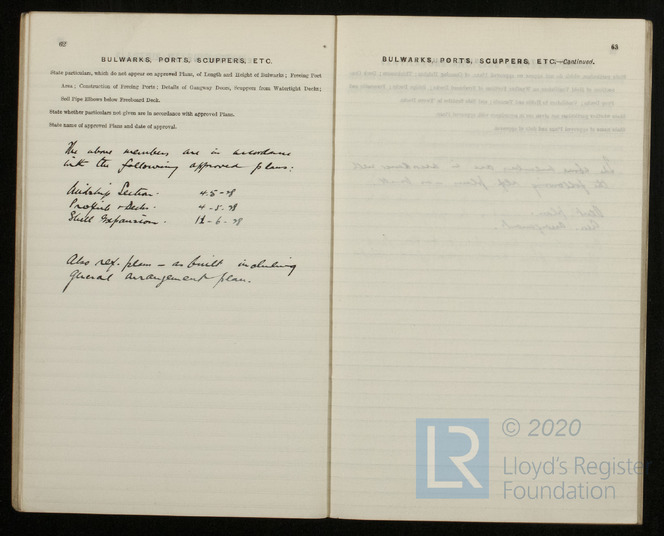 62
BULWARKS, PORTS, SCUPPERS, ETC.
State particulars, which do not appear on approved Plans, of Length and Height of Bulwarks; Freeing Port
Area; Construction of Freeing Ports; Details of Gangway Doors, Scuppers from Watertight Decks;
Soil Pipe Elbows below Freeboard Deck.
State whether particulars not given are in accordance with approved Plans.
State name of approved Plans and date of approval.
The above members are in accordance
with the following approved plans:
Midship Section. 4-5-28
Profile & Decks. 4-5-28
Shell Expansion. -6-28
Also ref. plans - as built including
general arrangement plan.
63
BULWARKS, PORTS, SCUPPERS, ETC.—Continued.
© 2020
LR
Lloyd's Register
Foundation